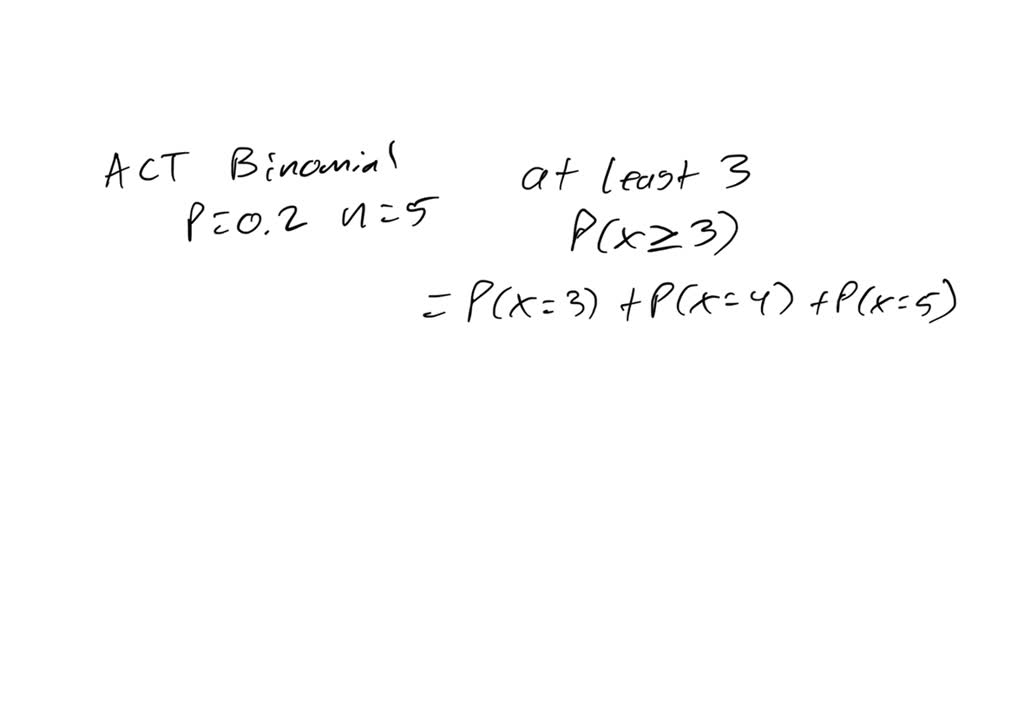 ACT Binomial
P=0.2 n=5
at least 3
P(x≥3)
=P(x=3)+P(x=4)+P(x=5)